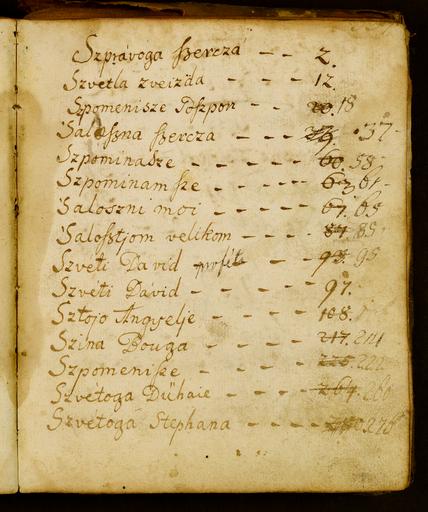 Szpravoga szercza - - 2.
Szvetla zveizda - - - - 12.
Szpomenisze Poszpon - - 18
Saloszna szercza - - - 37-
Szpominasze - - - - - 60. 58.
Szpominam sze - - - - - 63. 61.
Saloszni moi - - - - - 67. 65
Salosztjom velikom - - - - 87. 85.
Szvéti David - - - 98. 95
Szvéti David - - - - - 97.
Sztojo Angyelje - - - - 108.
Szina Bouga - - - - 217. 211
Szpomenike - - - - - 222
Szvétoga Dühaie - - - - 264. 260
Szvétoga Stephana - - - - 276